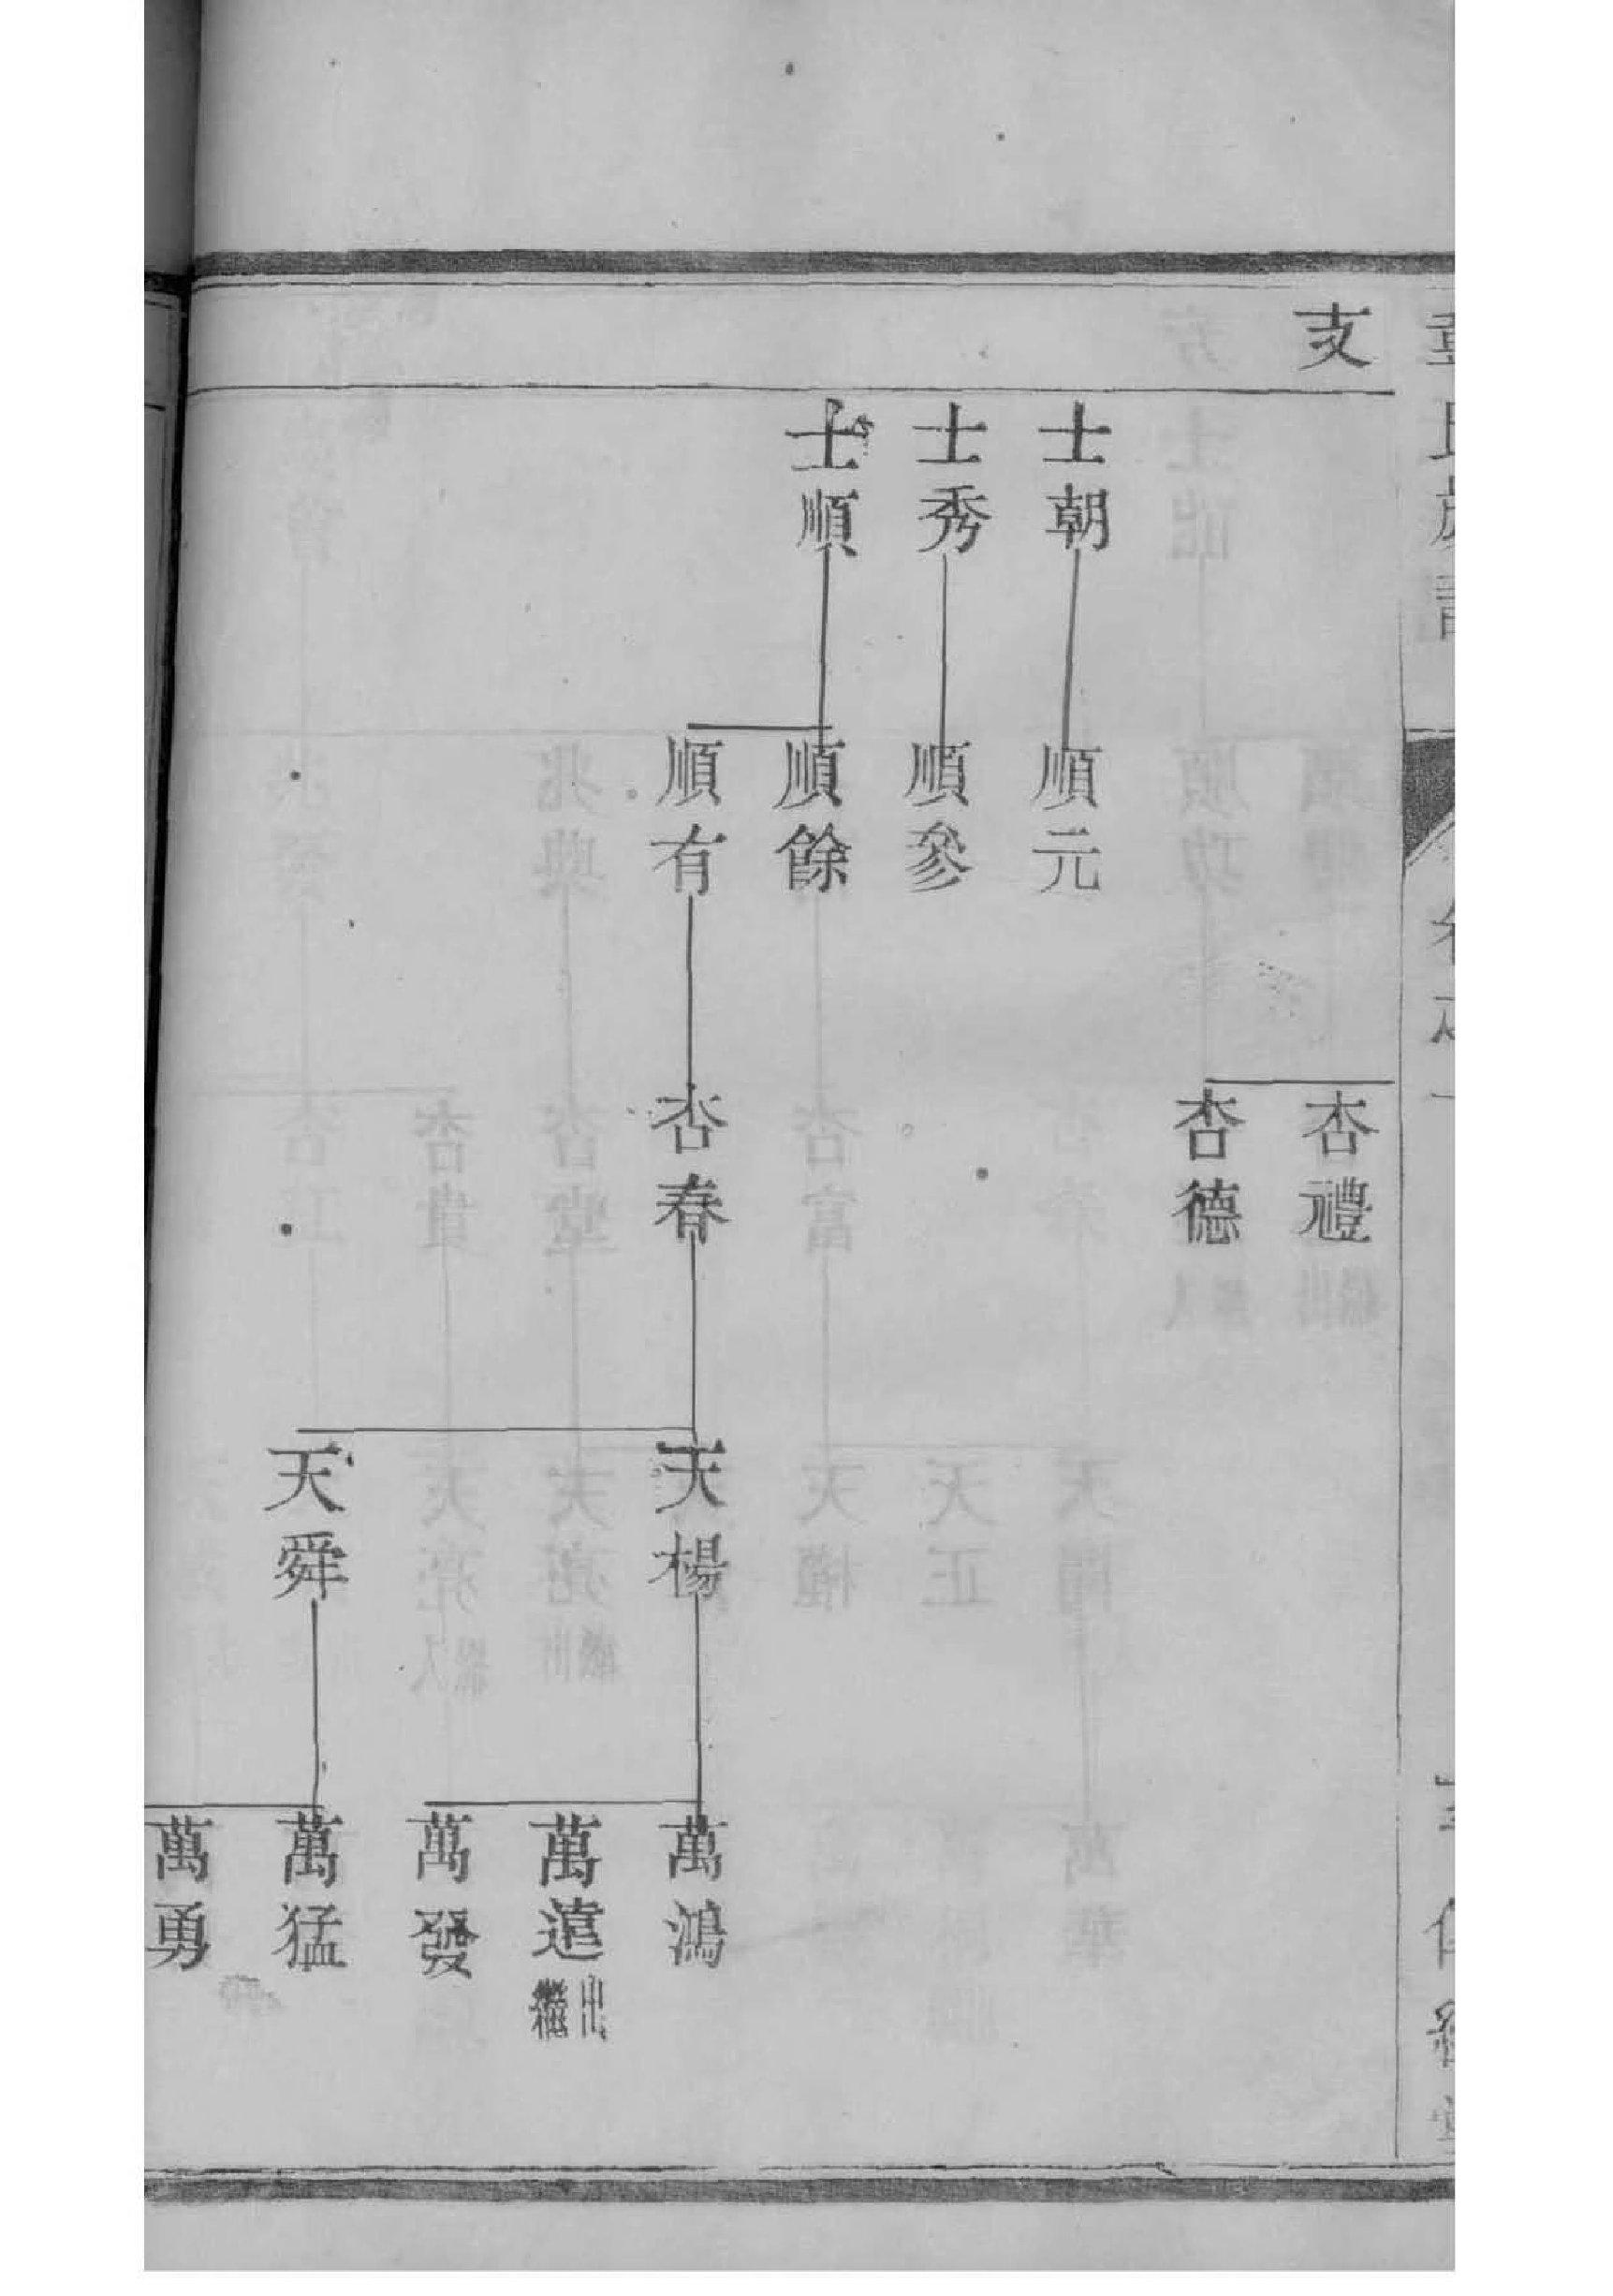 支
士朝
士秀
士順
順元
順參
順餘
順有
杏禮
杏德
杏春
天楊
天舜
萬鴻
萬遠出繼
萬發
萬猛
萬勇